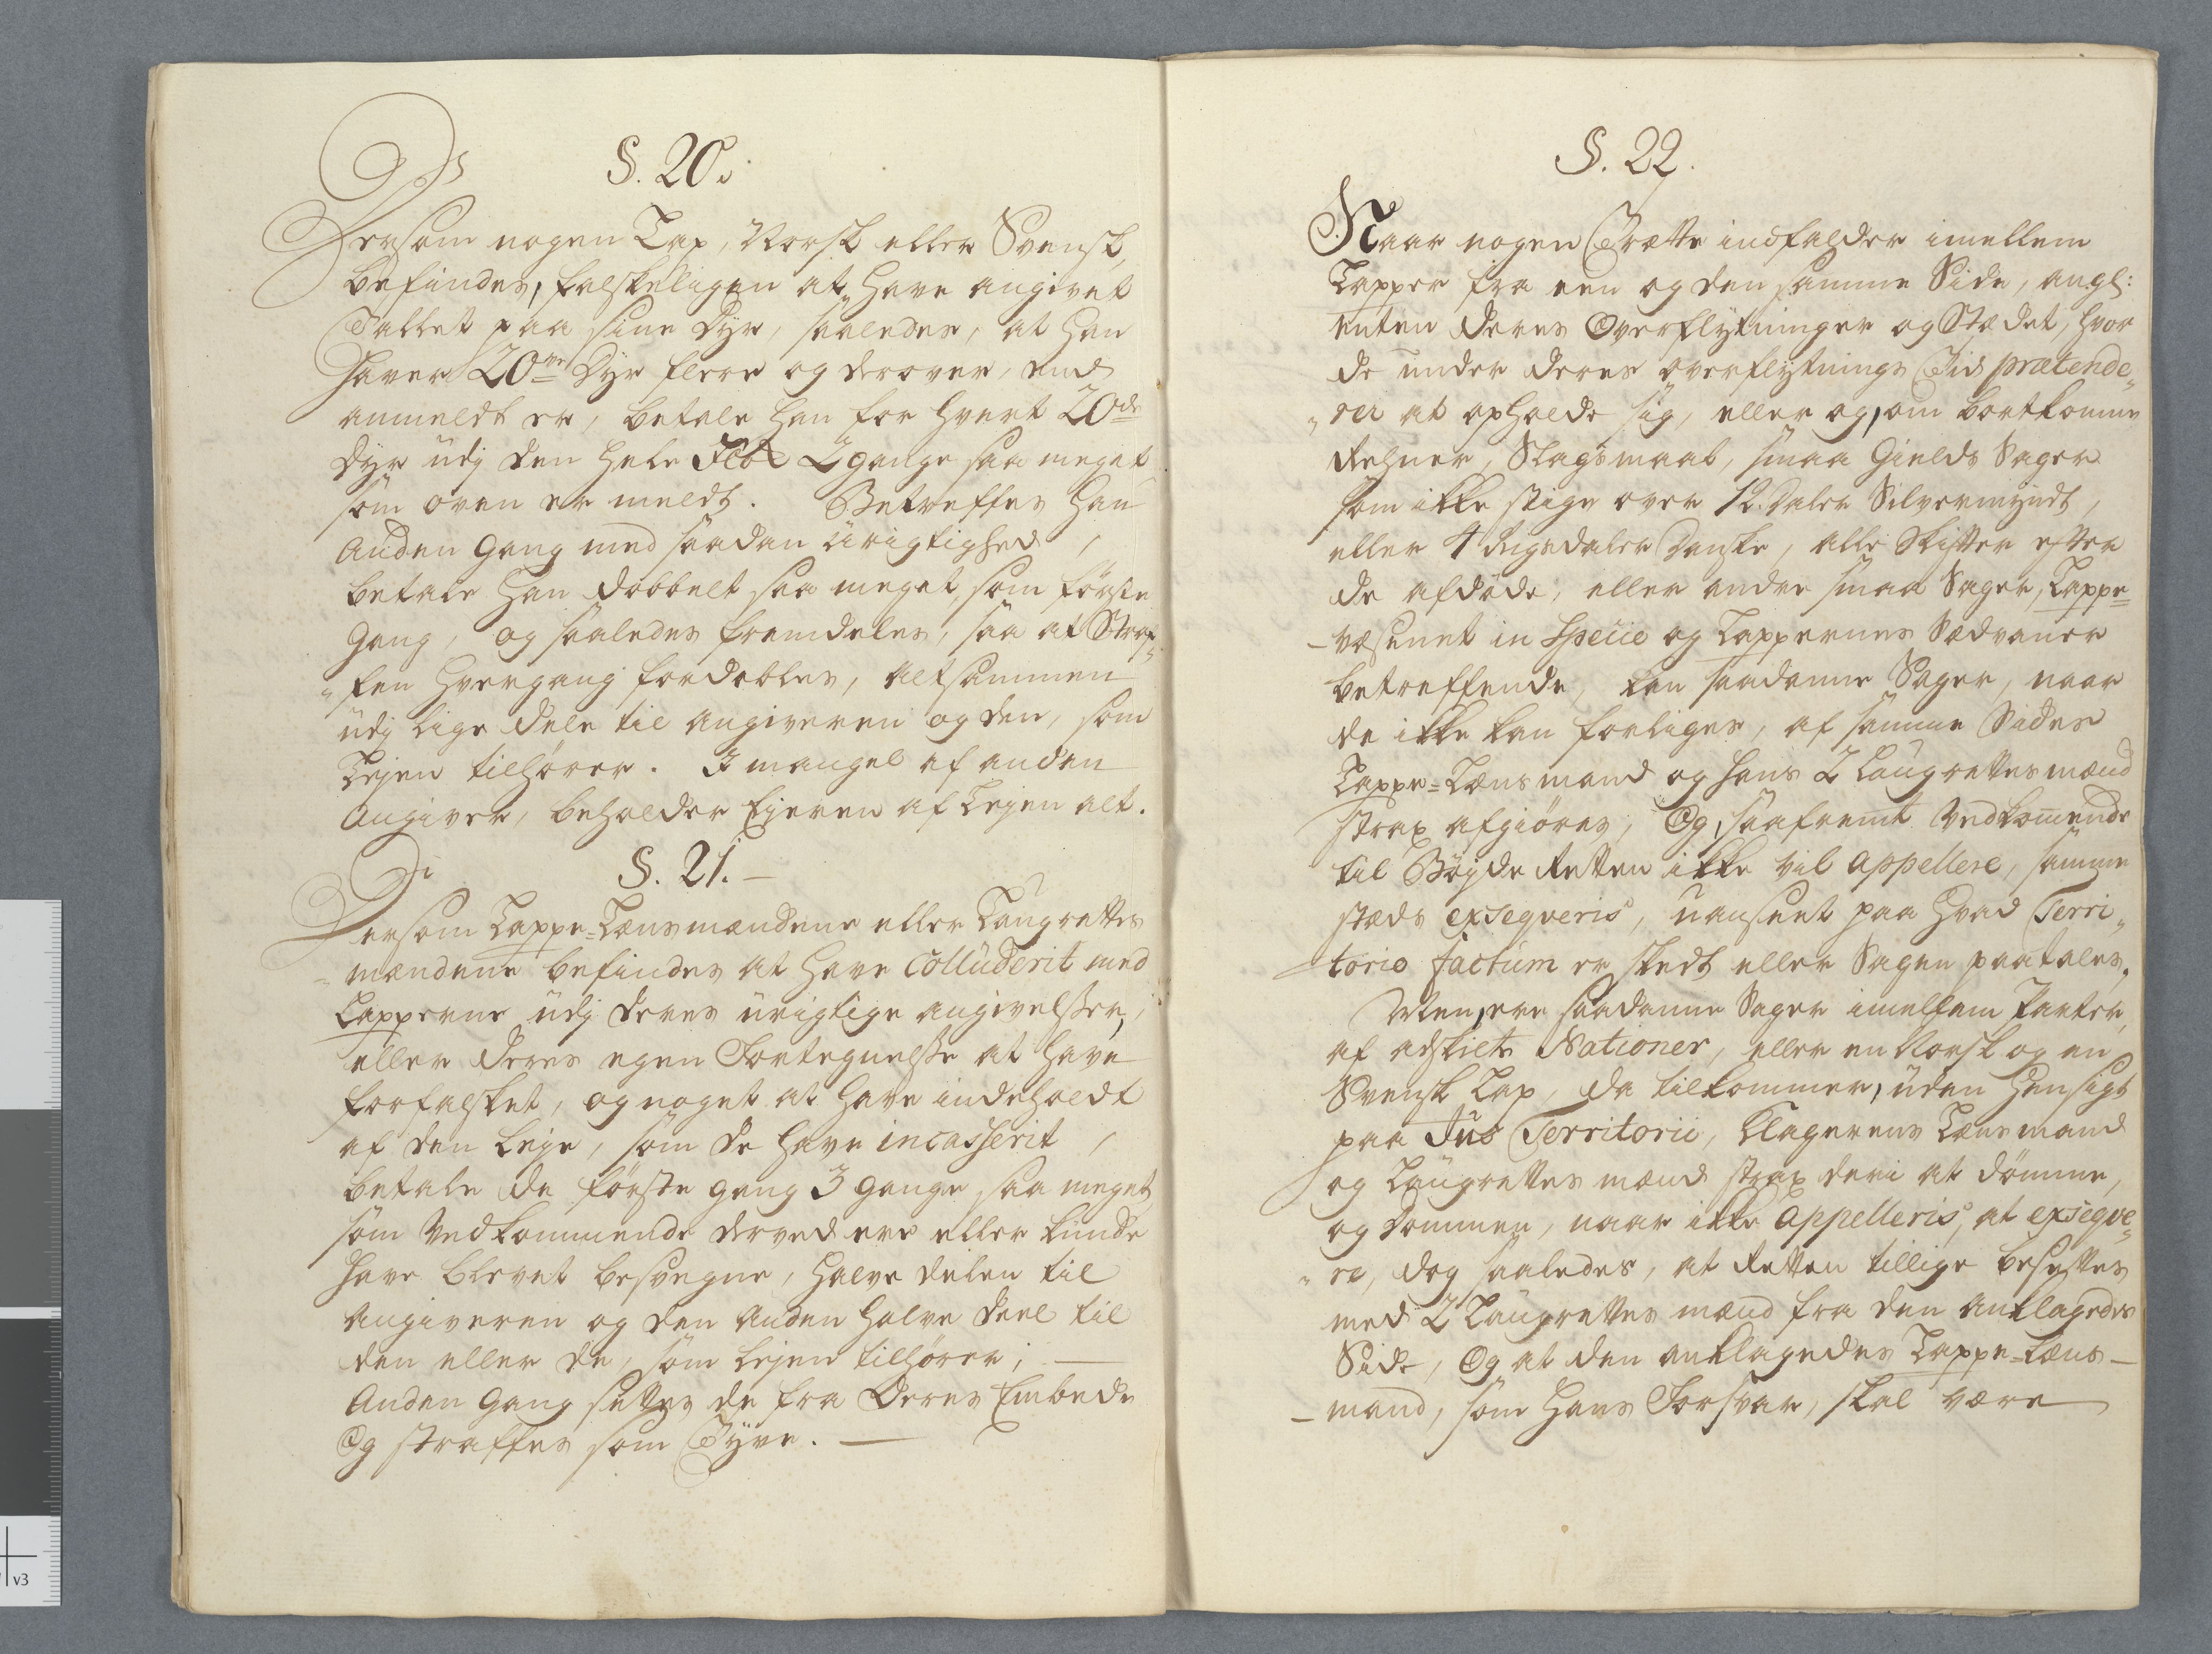 §. 20.
Dersom nogen Lap, Norsk eller Svensk,
befindes, falskeligen at have angivet
Tallet paa sine Dyr, saaledes, at han
haver 20ve Dyr flere og derover, end
anmeldt er, betale han for hvert 20de
Dyr udj den hele Flok 2 gange saa meget
som oven er meldt. Betreffes han
Anden Gang med saadan urigtighed,
betale han dobbelt saa meget, som første
Gang, og saaledes fremdeles, saa at Straf„
„fen hvergang fordobles, altsammen
udj lige dele til Angiveren og den, som
Lejen tilhører. I mangel af anden
Angiver, beholder Ejeren af Lejen alt.
§. 21.
Dersom Lappe-Lænsmændene eller Laugrettes
„mændene befindes at have Colluderit med
Lapperne udj deres urigtige angivelsser,
eller deres egen Fortegnelsse at have
forfalsket, og noget at have indeholdt
af den leje, som de have incasserit,
betale de første gang 3 gange saa meget,
som Vedkommende derved ere eller kunde
have blevet besvegne, halve delen til
Angiveren og den Anden halve deel til
den eller de, som lejen tilhører;
Anden Gang settes de fra Deres Embede
Og straffes som Tyve.
§. 22.
Naar nogen Trætte indfalder imellem
Lapper fra een og den samme Side, angl:
enten deres Overflytninger og Stædet, hvor
de under deres overflytnings Tid prætende„
„rer at opholde sig, eller og, om bortkomne
Rehner, Slagsmaal, smaa Gields Sager
som ikke stige over 12. Daler Silvermyndt,
eller 4 Rigsdaler Danske, alle Skifter efter
de afdøde, eller andre smaa Sager, Lappe-
-væsenet in Specie og Lappernes Sædvaner
betreffende, kan saadanne Sager, naar
de ikke kan forliges, af samme Sides
Lappe-Lænsmand og hans 2 Laugrettesmænd
strax afgiøres, Og, saafremt Vedkommende
til Bøyde Retten ikke vil appellere, samme
stæds exseqveris, uanseet paa hvad Terri„
torio factum er skedt eller Sagen paatales.
Men, ere saadanne Sager imellem Parter,
af adskilte Nationer, eller en Norsk og en
Svensk Lap, da tilkommer, uden hensigt
paa Jus Territorii, Klagerens Lænsmand
og Laugrettes mænd strax deri at dømme,
og Dommen, naar ikke appelleris, at exseqve„
„re, dog saaledes, at Retten tillige besettes
med 2 Laugrettes mænd fra den Anklagedes
Side, Og at den anklagedes Lappe-Læns-
-mand, som hans Forsvar, skal være
v3